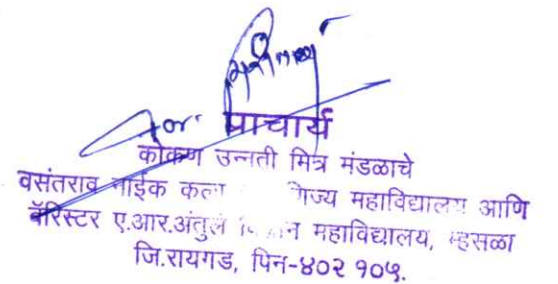 for
प्राचार्य
कोकण उन्नती मित्र मंडळाचे
वसंतराव नाईक कला महाविद्यालय आणि
बॅरिस्टर ए.आर.अंतुले महाविद्यालय, म्हसळा
जि.रायगड, पिन-४०२ १०५.